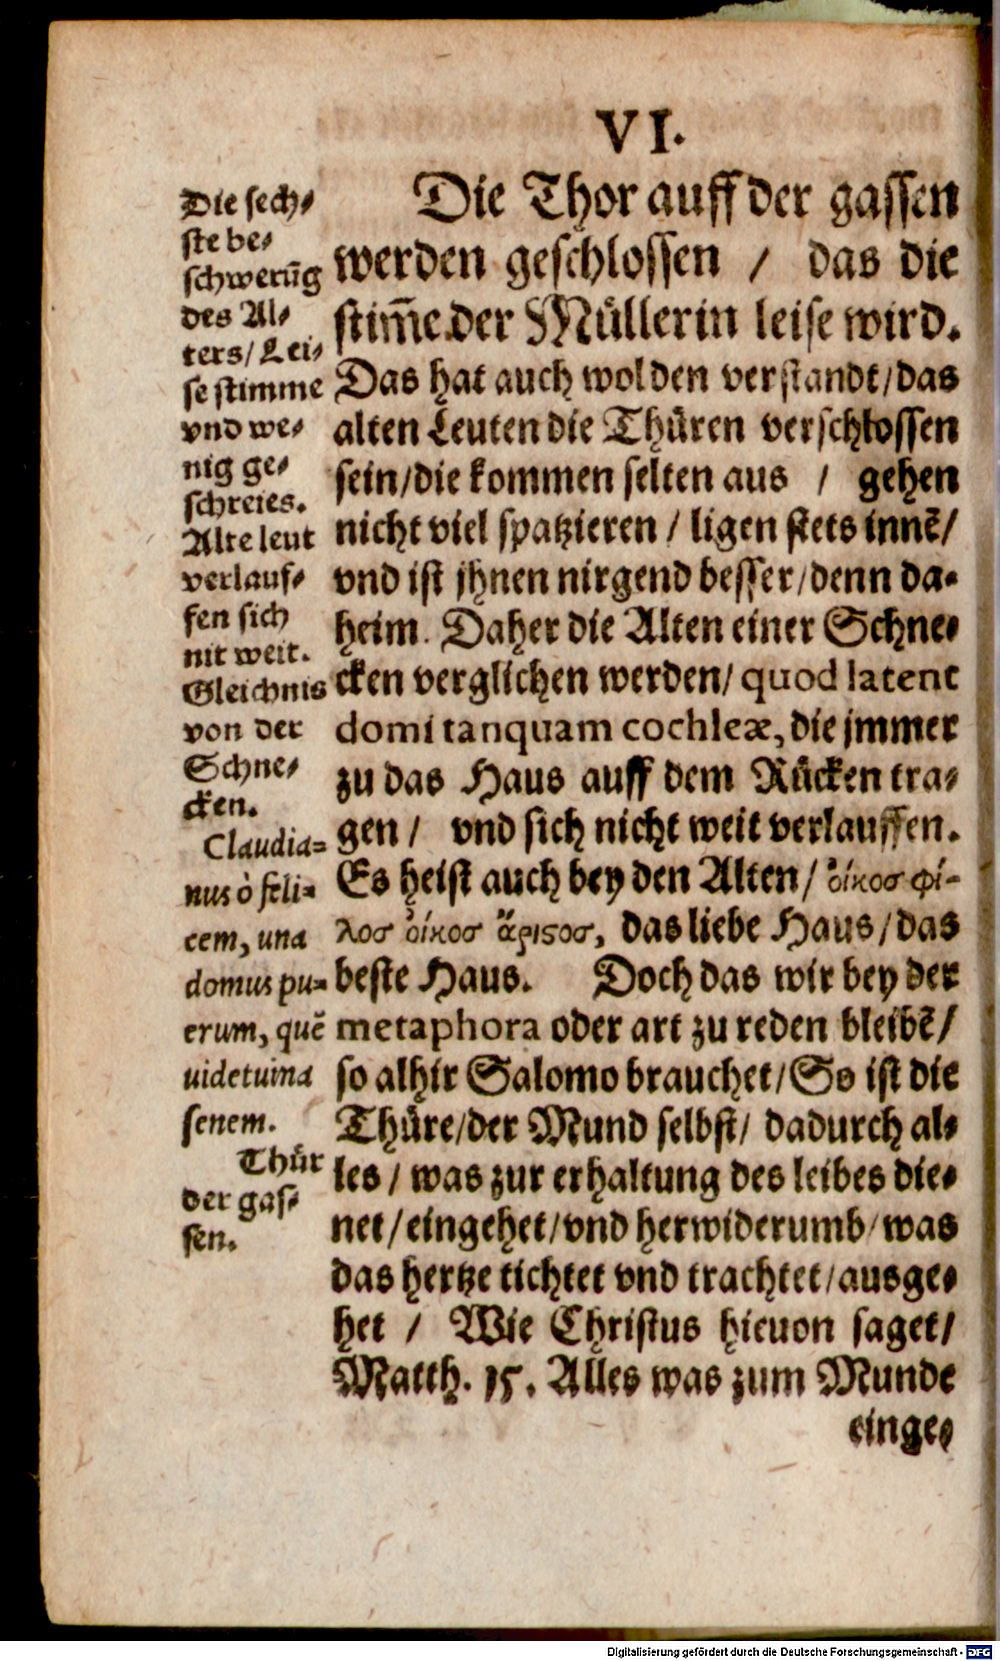 VI.
Die Thor auff der gassen
werden geschlossen / das die
stim̃e der Müllerin leise wird.
Das hat auch wol den verstandt/das
alten Leuten die Thüren verschlossen
sein/die kommen selten aus / gehen
nicht viel spatzieren / ligen stets innẽ/
vnd ist jhnen nirgend besser/denn da-
heim. Daher die Alten einer Schne-
cken verglichen werden/ quod latent
domi tanquam cochleæ, die jmmer
zu das Haus auff dem Rücken tra-
gen / vnd sich nicht weit verlauffen.
Es heist auch bey den Alten/ ὀίκοσ φί-
λοσ ὀίκοσ ἄριςοσ, das liebe Haus/das
beste Haus. Doch das wir bey der
metaphora oder art zu reden bleibẽ/
so alhir Salomo brauchet/So ist die
Thüre/der Mund selbst/ dadurch al-
les / was zur erhaltung des leibes die-
net/eingehet/vnd herwiderumb/was
das hertze tichtet vnd trachtet/ausge-
het / Wie Christus hieuon saget/
Matth. 15. Alles was zum Munde
einge-
Die sech-
ste be-
schwerũg
des Al-
ters/Lei-
se stimme
vnd we-
nig ge-
schreies.
Alte leut
verlauf-
fen sich
nit weit.
Gleichnis
von der
Schne-
cken.
Claudia-
nus ò feli-
cem, una
domus pu-
erum, quẽ
uidet una
senem.
Thür
der gas-
sen.
Digitalisierung gefördert durch die Deutsche Forschungsgemeinschaft - DFG